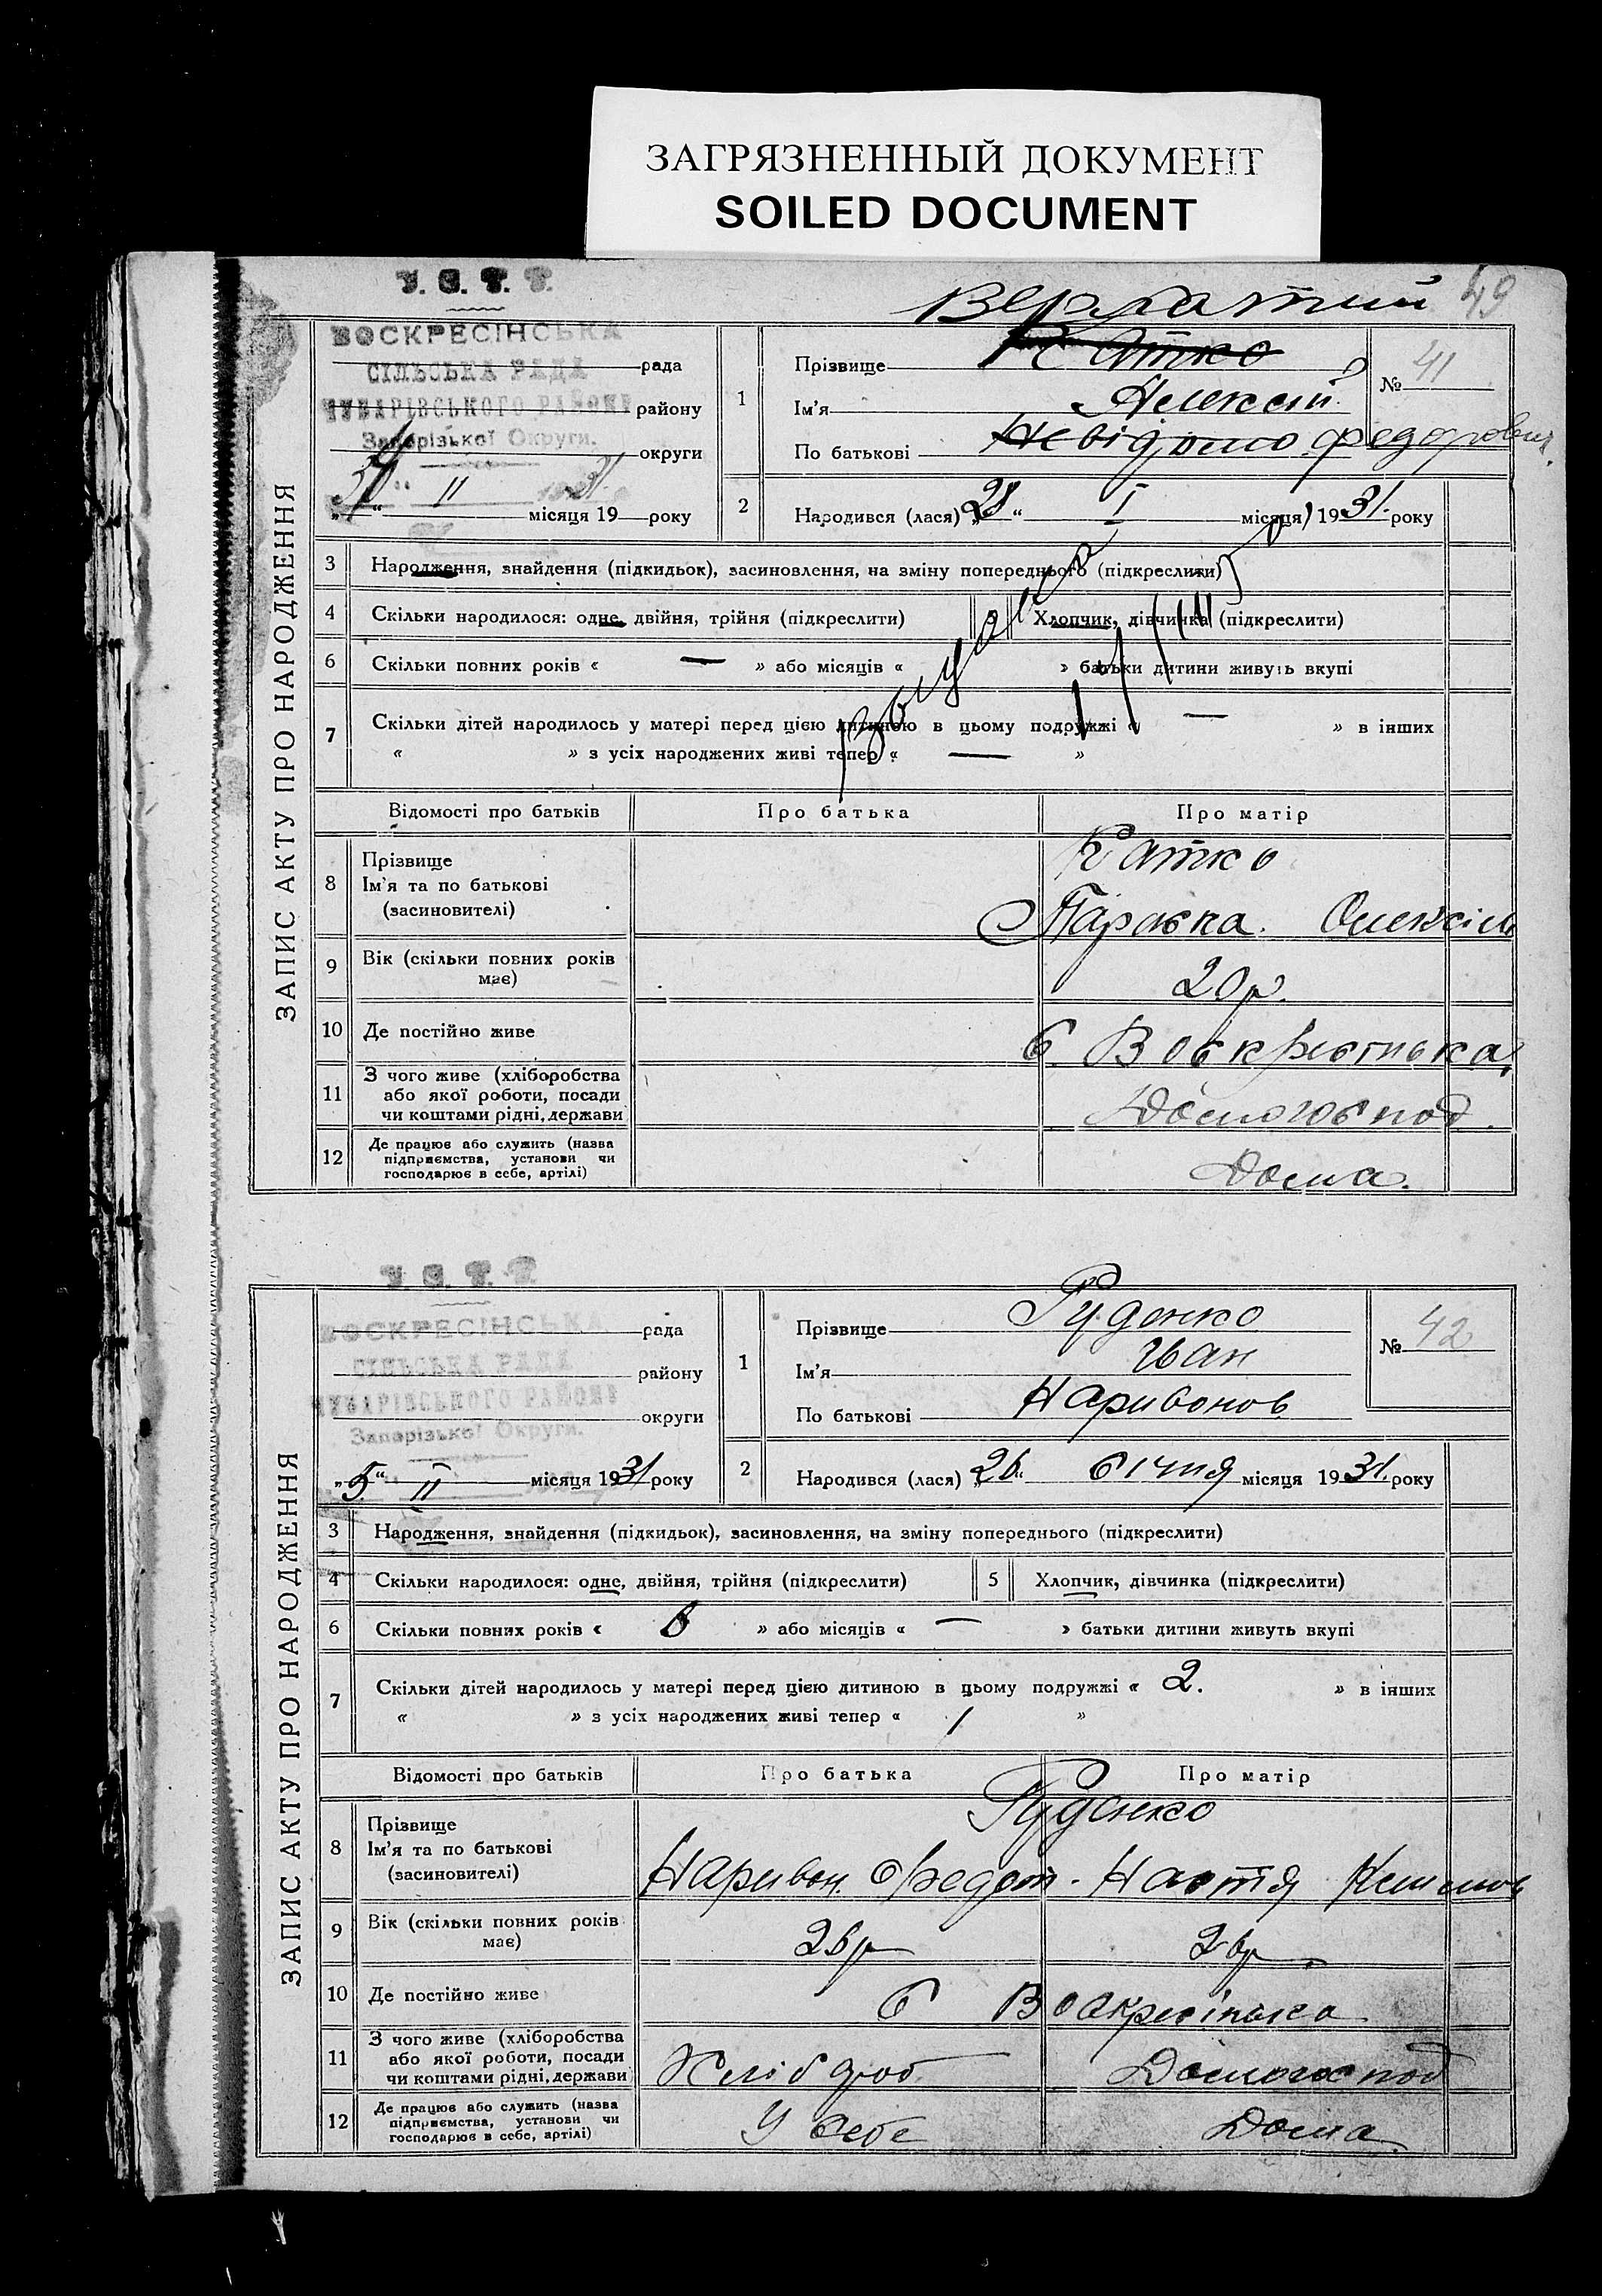 ЗАГРЯЗНЕННЫЙ ДОКУМЕНТ
SOILED DOCUMENT
У. С. Р. Р.
49
ЗАПИС АКТУ ПРО НАРОДЖЕННЯ
ВОСКРЕСІНСЬКА
рада
СІЛЬСЬКА РАДА
ЧУБАРІВСЬКОГО РАЙОНУ району
Запорізької Округи.
округи
II 31 місяця 19 року
1 Прізвище Катко
Ім'я Алексій
По батькові Невідомо Федорович
№ 41
2 Народився (лася) „28“ I місяця 1931 року
3 Народження, знайдення (підкидьок), засиновлення, на зміну попереднього (підкреслити)
4 Скільки народилося: одне, двійня, трійня (підкреслити) Хлопчик, дівчинка (підкреслити)
6 Скільки повних років « — » або місяців « » батьки дитини живуть вкупі
7 Скільки дітей народилось у матері перед цією дитиною в цьому подружжі « — » в інших
« » з усіх народжених живі тепер « — »
Відомості про батьків Про батька Про матір
8 Прізвище Ім'я та по батькові (засиновителі) Катко
Параска Олексіїв
9 Вік (скільки повних років має) 20 р.
10 Де постійно живе с. Воскресінська
11 З чого живе (хліборобства або якої роботи, посади чи коштами рідні, держави Домогоспод.
12 Де працює або служить (назва підприємства, установи чи господарює в себе, артілі) Дома.
У. С. Р. Р.
ЗАПИС АКТУ ПРО НАРОДЖЕННЯ
ВОСКРЕСІНСЬКА рада
СІЛЬСЬКА РАДА
району
ЧУБАРІВСЬКОГО РАЙОНУ
округи
Запорізької Округи.
„5“ II місяця 1931 року
1 Прізвище Руденко
Ім'я Іван
По батькові Наривонов
№ 42
2 Народився (лася) „26“ січня місяця 1931 року
3 Народження, знайдення (підкидьок), засиновлення, на зміну попереднього (підкреслити)
4 Скільки народилося: одне, двійня, трійня (підкреслити) 5 Хлопчик, дівчинка (підкреслити)
6 Скільки повних років « 6 » або місяців « — » батьки дитини живуть вкупі
7 Скільки дітей народилось у матері перед цією дитиною в цьому подружжі « 2. » в інших
« » з усіх народжених живі тепер « 1 »
Відомості про батьків Про батька Про матір
8 Прізвище Ім'я та по батькові (засиновителі) Руденко
Наривон Настя
9 Вік (скільки повних років має) 26 р 26 р
10 Де постійно живе с Воскресінська
11 З чого живе (хліборобства або якої роботи, посади чи коштами рідні, держави Хлібороб Домогоспод
12 Де працює або служить (назва підприємства, установи чи господарює в себе, артілі) У себе Дома